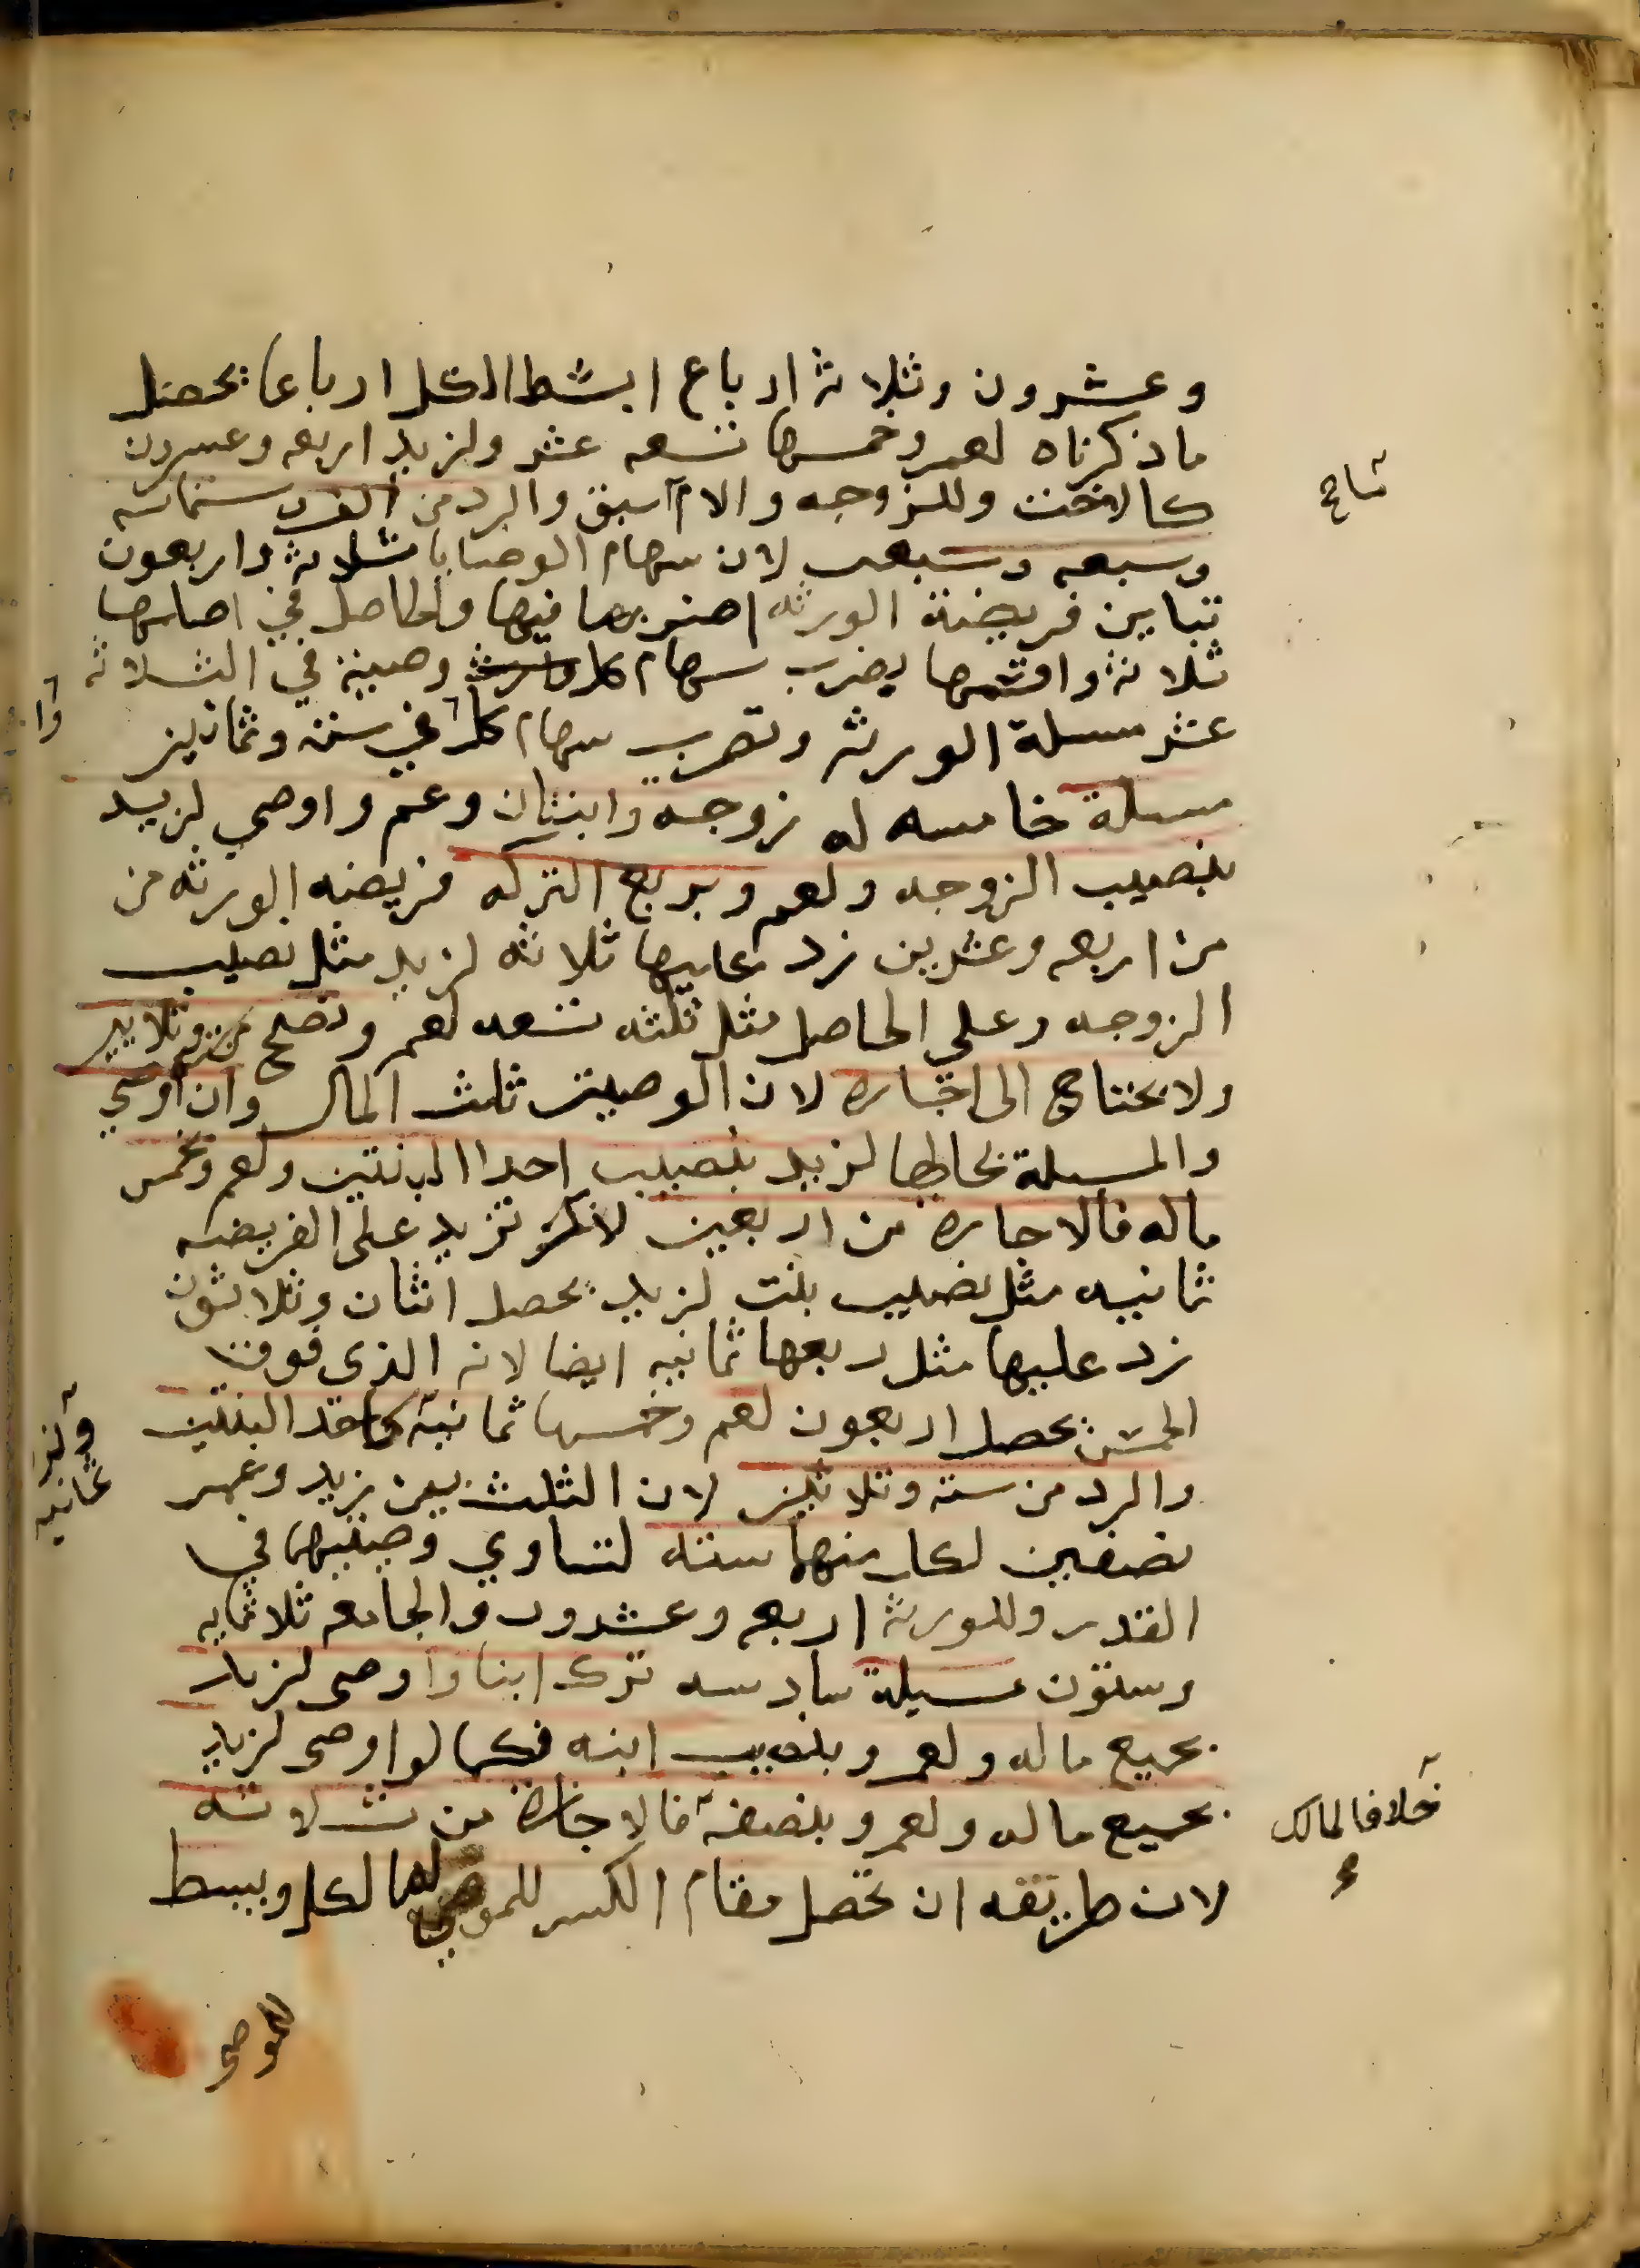 وعشرون وثلاثة ارباع ابسط الكل ارباعا يحصل
ما ذكرناه لعمرو خمسها تسعه عشر ولزيد اربعه وعشرون
كالاخت وللزوجه والام آسبق والرد من الف وستمائه
وسبعه وسبعين لان سهام الوصايا ثلاثة واربعون
تباين فريضة الورثه اضربها فيها والحاصل في اصلها
ثلاثة واقسمها بضرب سهام كل وصية في الثلاثة
عشر مسلة الورثه وتضرب سهام كل في ستة وثمانين
مسلة خامسه له زوجة وابنتان وعم واوصي لزيد
بنصيب الزوجه ولعمرو بربع التركه فريضه الورثه من
من اربعه وعشرين زد عليها ثلاثه لزيد مثل نصيب
الزوجه وعلى الحاصل مثل ثلثه تسعه لعمرو وتصح من ستة وثلاثين
ولا يحتاج الى اجازه لان الوصيتين ثلث المال وان اوصي
والمسلة بحالها لزيد بنصيب احدا البنتين ولعمرو بخمس
ماله فالاجازه من اربعين لانك تزيد على الفريضه
ثمانيه مثل نصيب بنت لزيد يحصل اثنان وثلاثون
زد عليها مثل ربعها ثمانيه ايضا لانه الذي فوق
الخمس يحصل اربعون لعمرو خمسها ثمانية كاحد البنتين
والرد من ستة وثلاثين لان الثلث بين زيد وعمرو
نصفين لكل منهما سته لتساوي وصيتيهما في
القدر وللورثة اربعه وعشرون والجامعه ثلاثمايه
وستون مسيلة سادسه ترك ابنا واوصى لزيد
بجميع ماله ولعمرو بنصيب ابنه فكما لو اوصى لزيد
بجميع ماله ولعمرو بنصفه فالاجازة من ثلاثه
لان طريقه ان تحصل مقام الكسر للموصى له بالكل ويبسط
للموصى
خلافا لمالك
ولزيد
ثمانيه